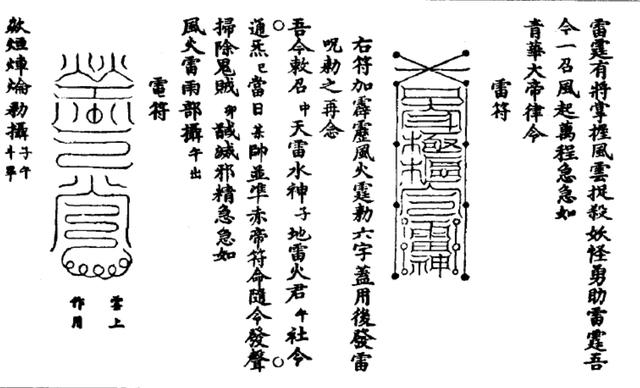 雷霆有將掌握風雲捉殺妖怪勇助雷霆吾
令一召風起萬程急急如
青華大帝律令
雷符
右符加霹靂風火霆勅六字蓋用後發雷
呪勅之再念
吾今敕召申天雷水神子地雷火君午社令
通炁巳當日某帥並準赤帝符命隨令發聲
掃除鬼賊卯馘滅邪精急急如
風火雷雨部攝午出
電符
雲上
作用
勅攝子午